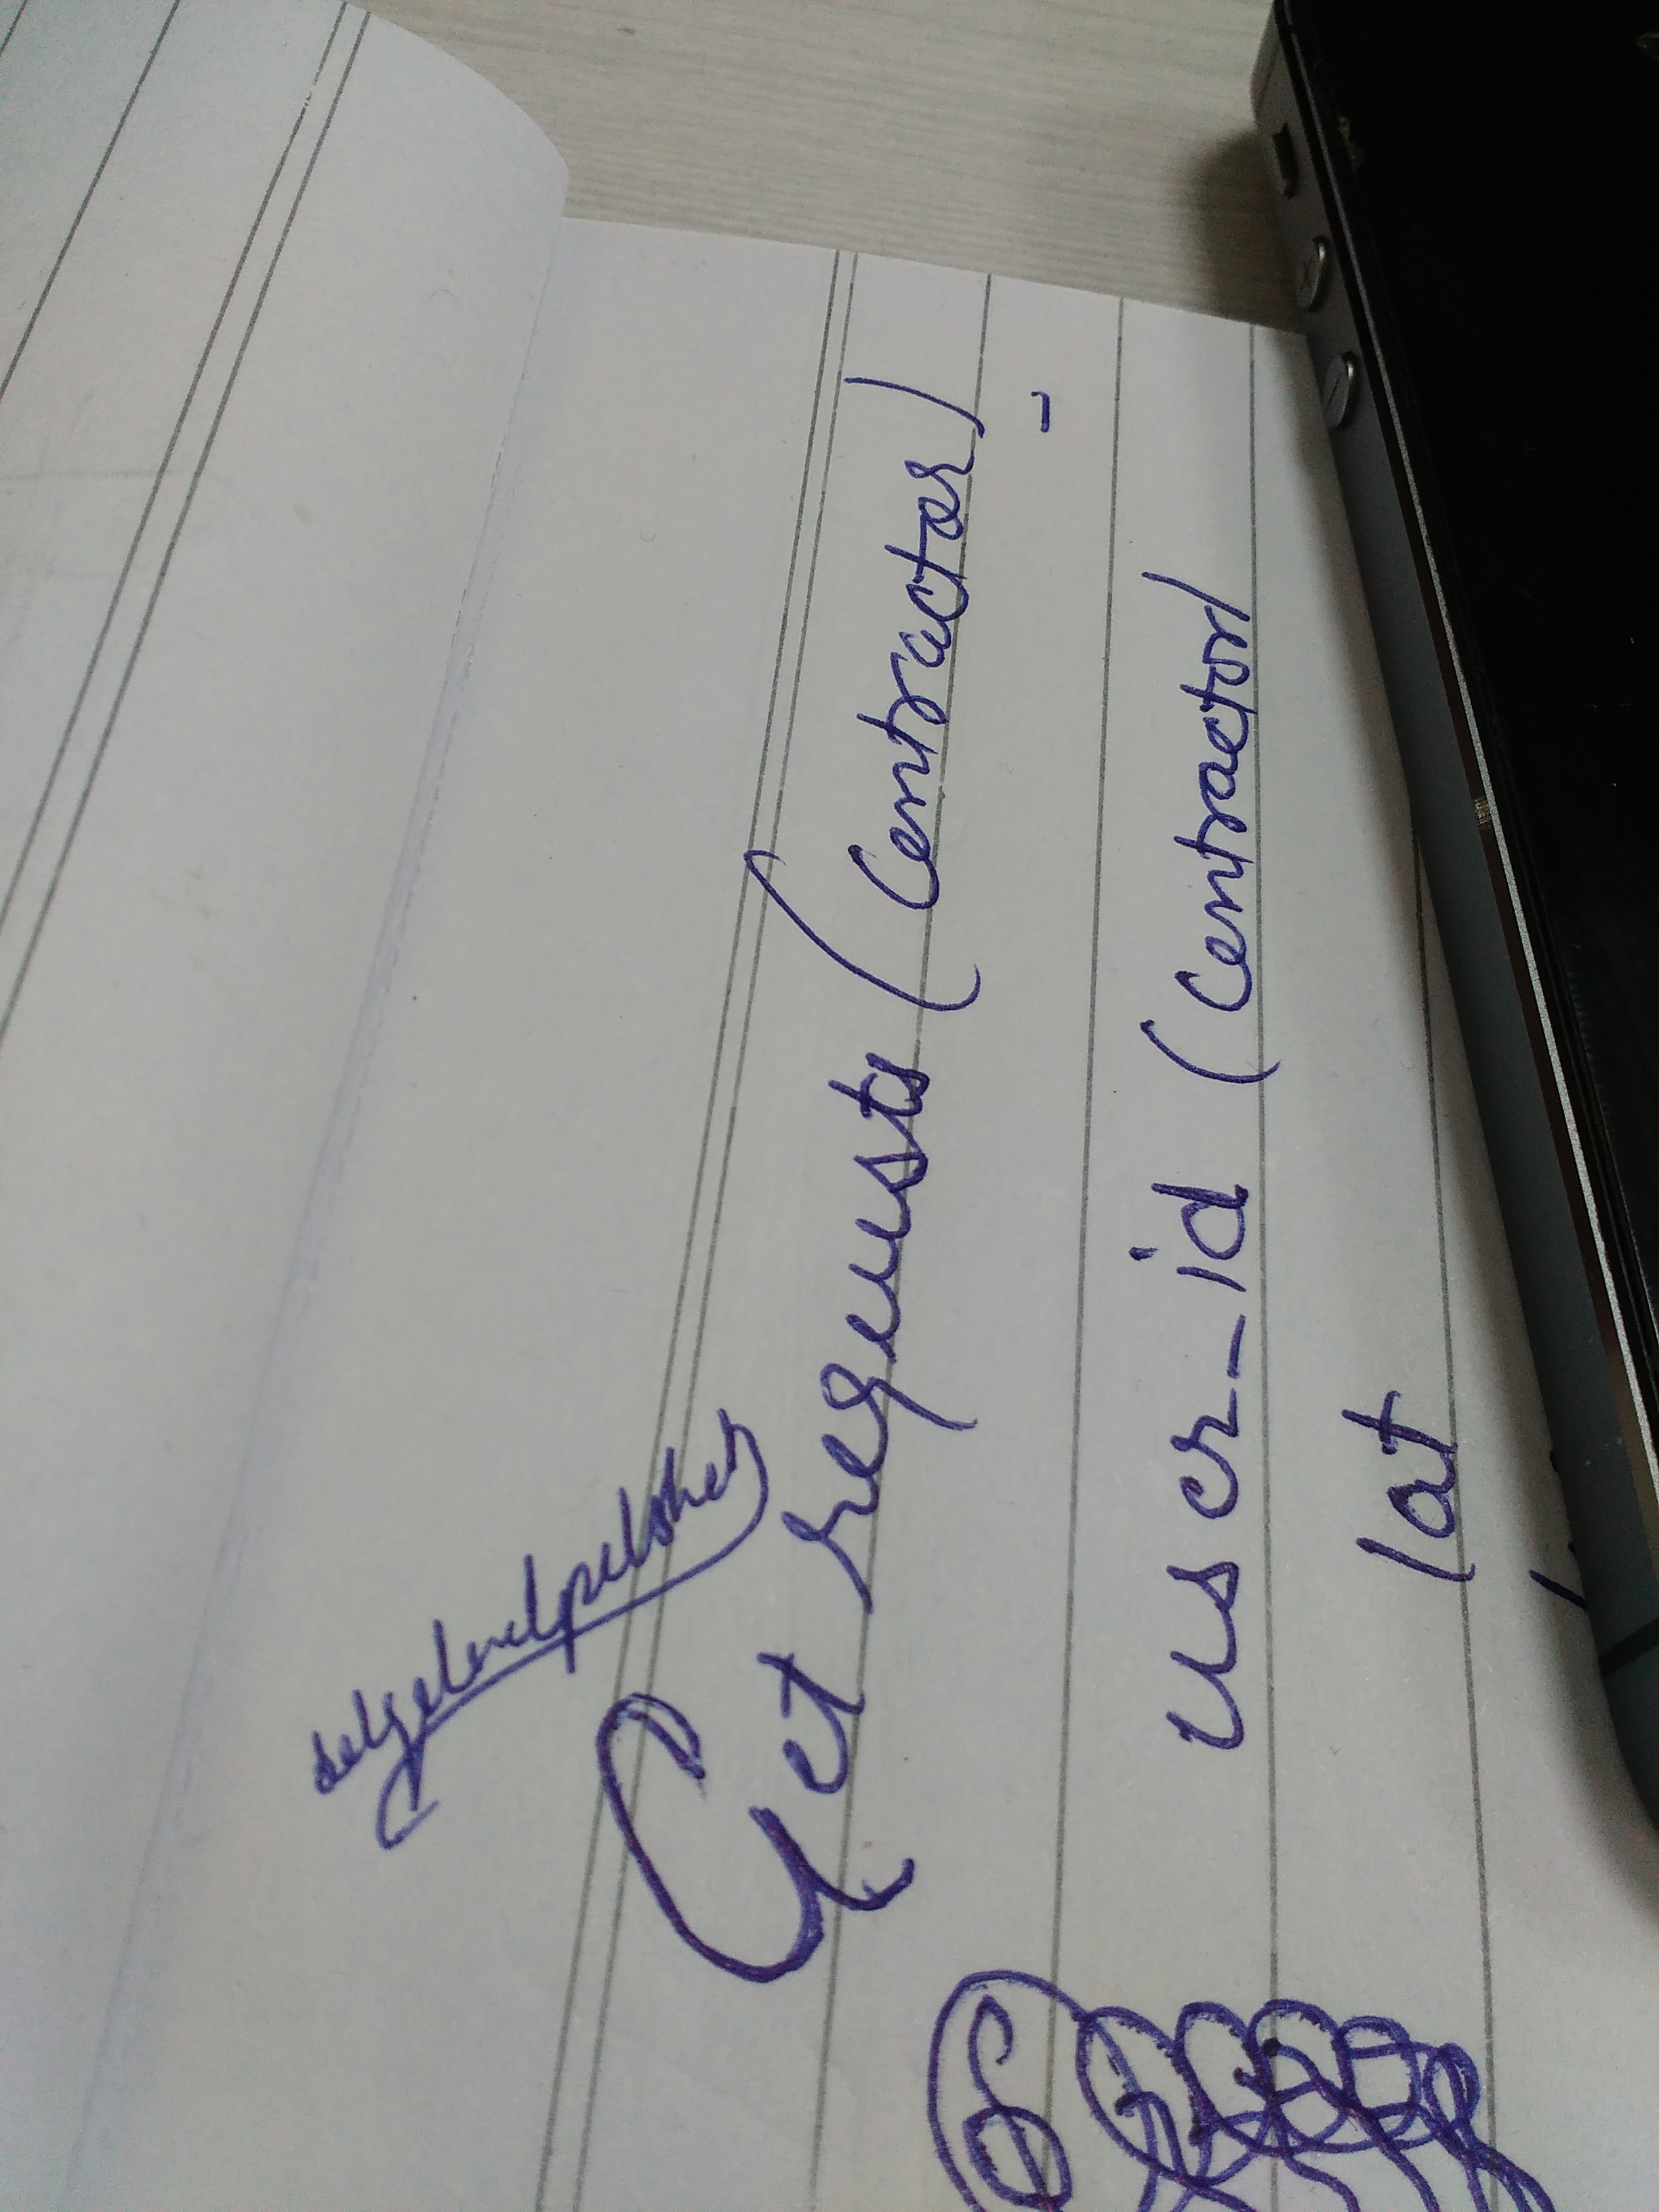 Get requests (Contractor)
user-id (Contractor)
lat